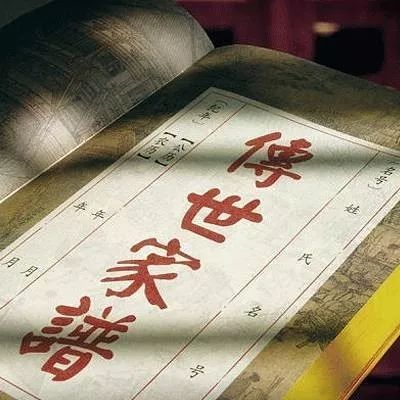 〔名号〕
姓氏名号
傳世家譜
〔紀年〕
【公历】
【农历】
年月
年月